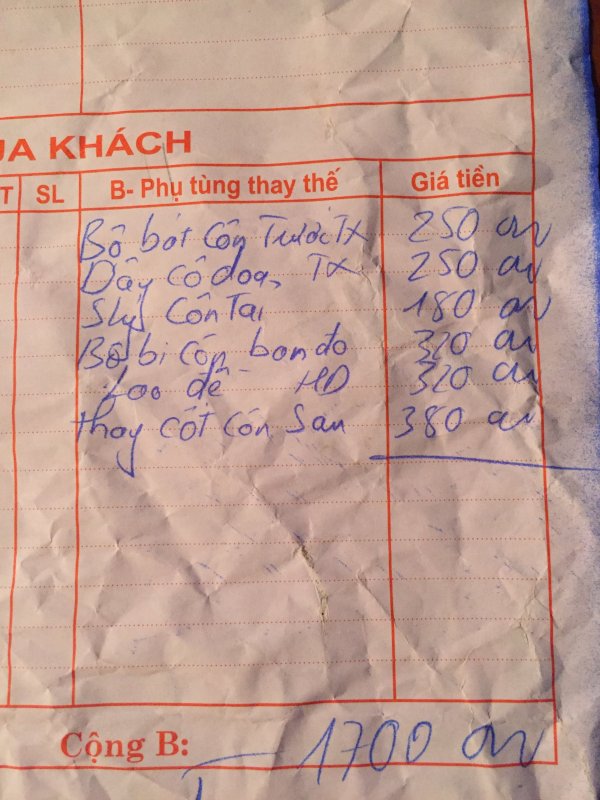 ỦA KHÁCH
T SL B- Phụ tùng thay thế Giá tiền
Bộ bót Côn Trước TX 250
Dây cô doa, TX 250
Côn Tai 180
Bộ bi côn ban đo 320
đề HD 320
thay cót Côn San 380
Cộng B: 1700